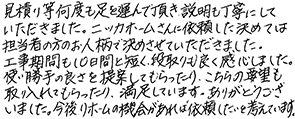 見積り等何度も足を運んで頂き、説明も丁寧にして
いただきました。ニッカホームさんに依頼した決めては
担当者の方のお人柄で決めさせていただきました。
工事期間も10日間と短く、段取りも良く感心しました。
使い勝手の良さを提案してもらったり、こちらの要望も
取り入れてもらったり、満足しています。ありがとうござ
いました。今後リホームの機会があれば依頼したいを考えています。